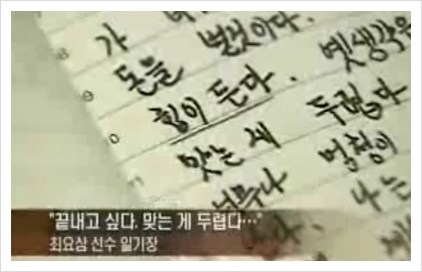 가
돈을 벌것이다.
힘이 든다. 옛생각은
맞는 게 두렵다
너무나 멍청이
나는
"끝내고 싶다. 맞는 게 두렵다…"
최요삼 선수 일기장